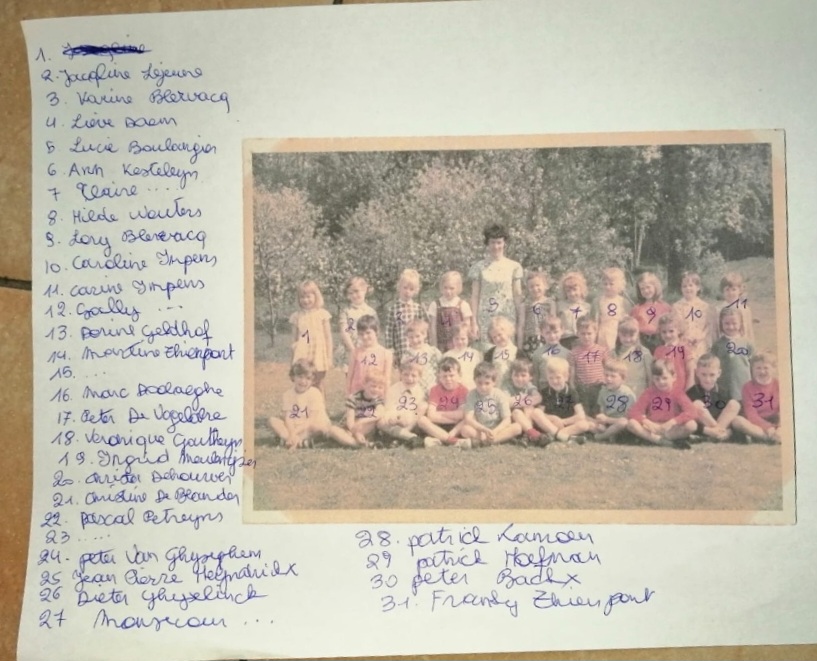 1.
2. Jacqline Lejeune
3. Karine Blervacq
4. Lieve Daem
5 Lucie Boulangier
6. Ann Kesteleyn
7 Claire ....
8. Hilde Wouters
9. Lory Blervacq
10. Caroline Impens
11. Carine Impens
12. Gally ...
13. Dorine Geldhof
14. Martine Thienpont
15. ....
16. Marc
17. Peter De
18. Veronique
19. Ingrid
20.
21. Christine De
22. Pascal Petreyns
23 .....
24. peter Van Ghyseghem
25 Jean Pierre
26 Dieter Ghyselinck
27 ...
28. patrick
29 patrick Hoefman
30 peter Backx
31. Franky Thienpont
1 2 3 4 5 6 7 8 9 10 11
12 13 14 15 16 17 18 19 20
21 22 23 24 25 26 27 28 29 30 31